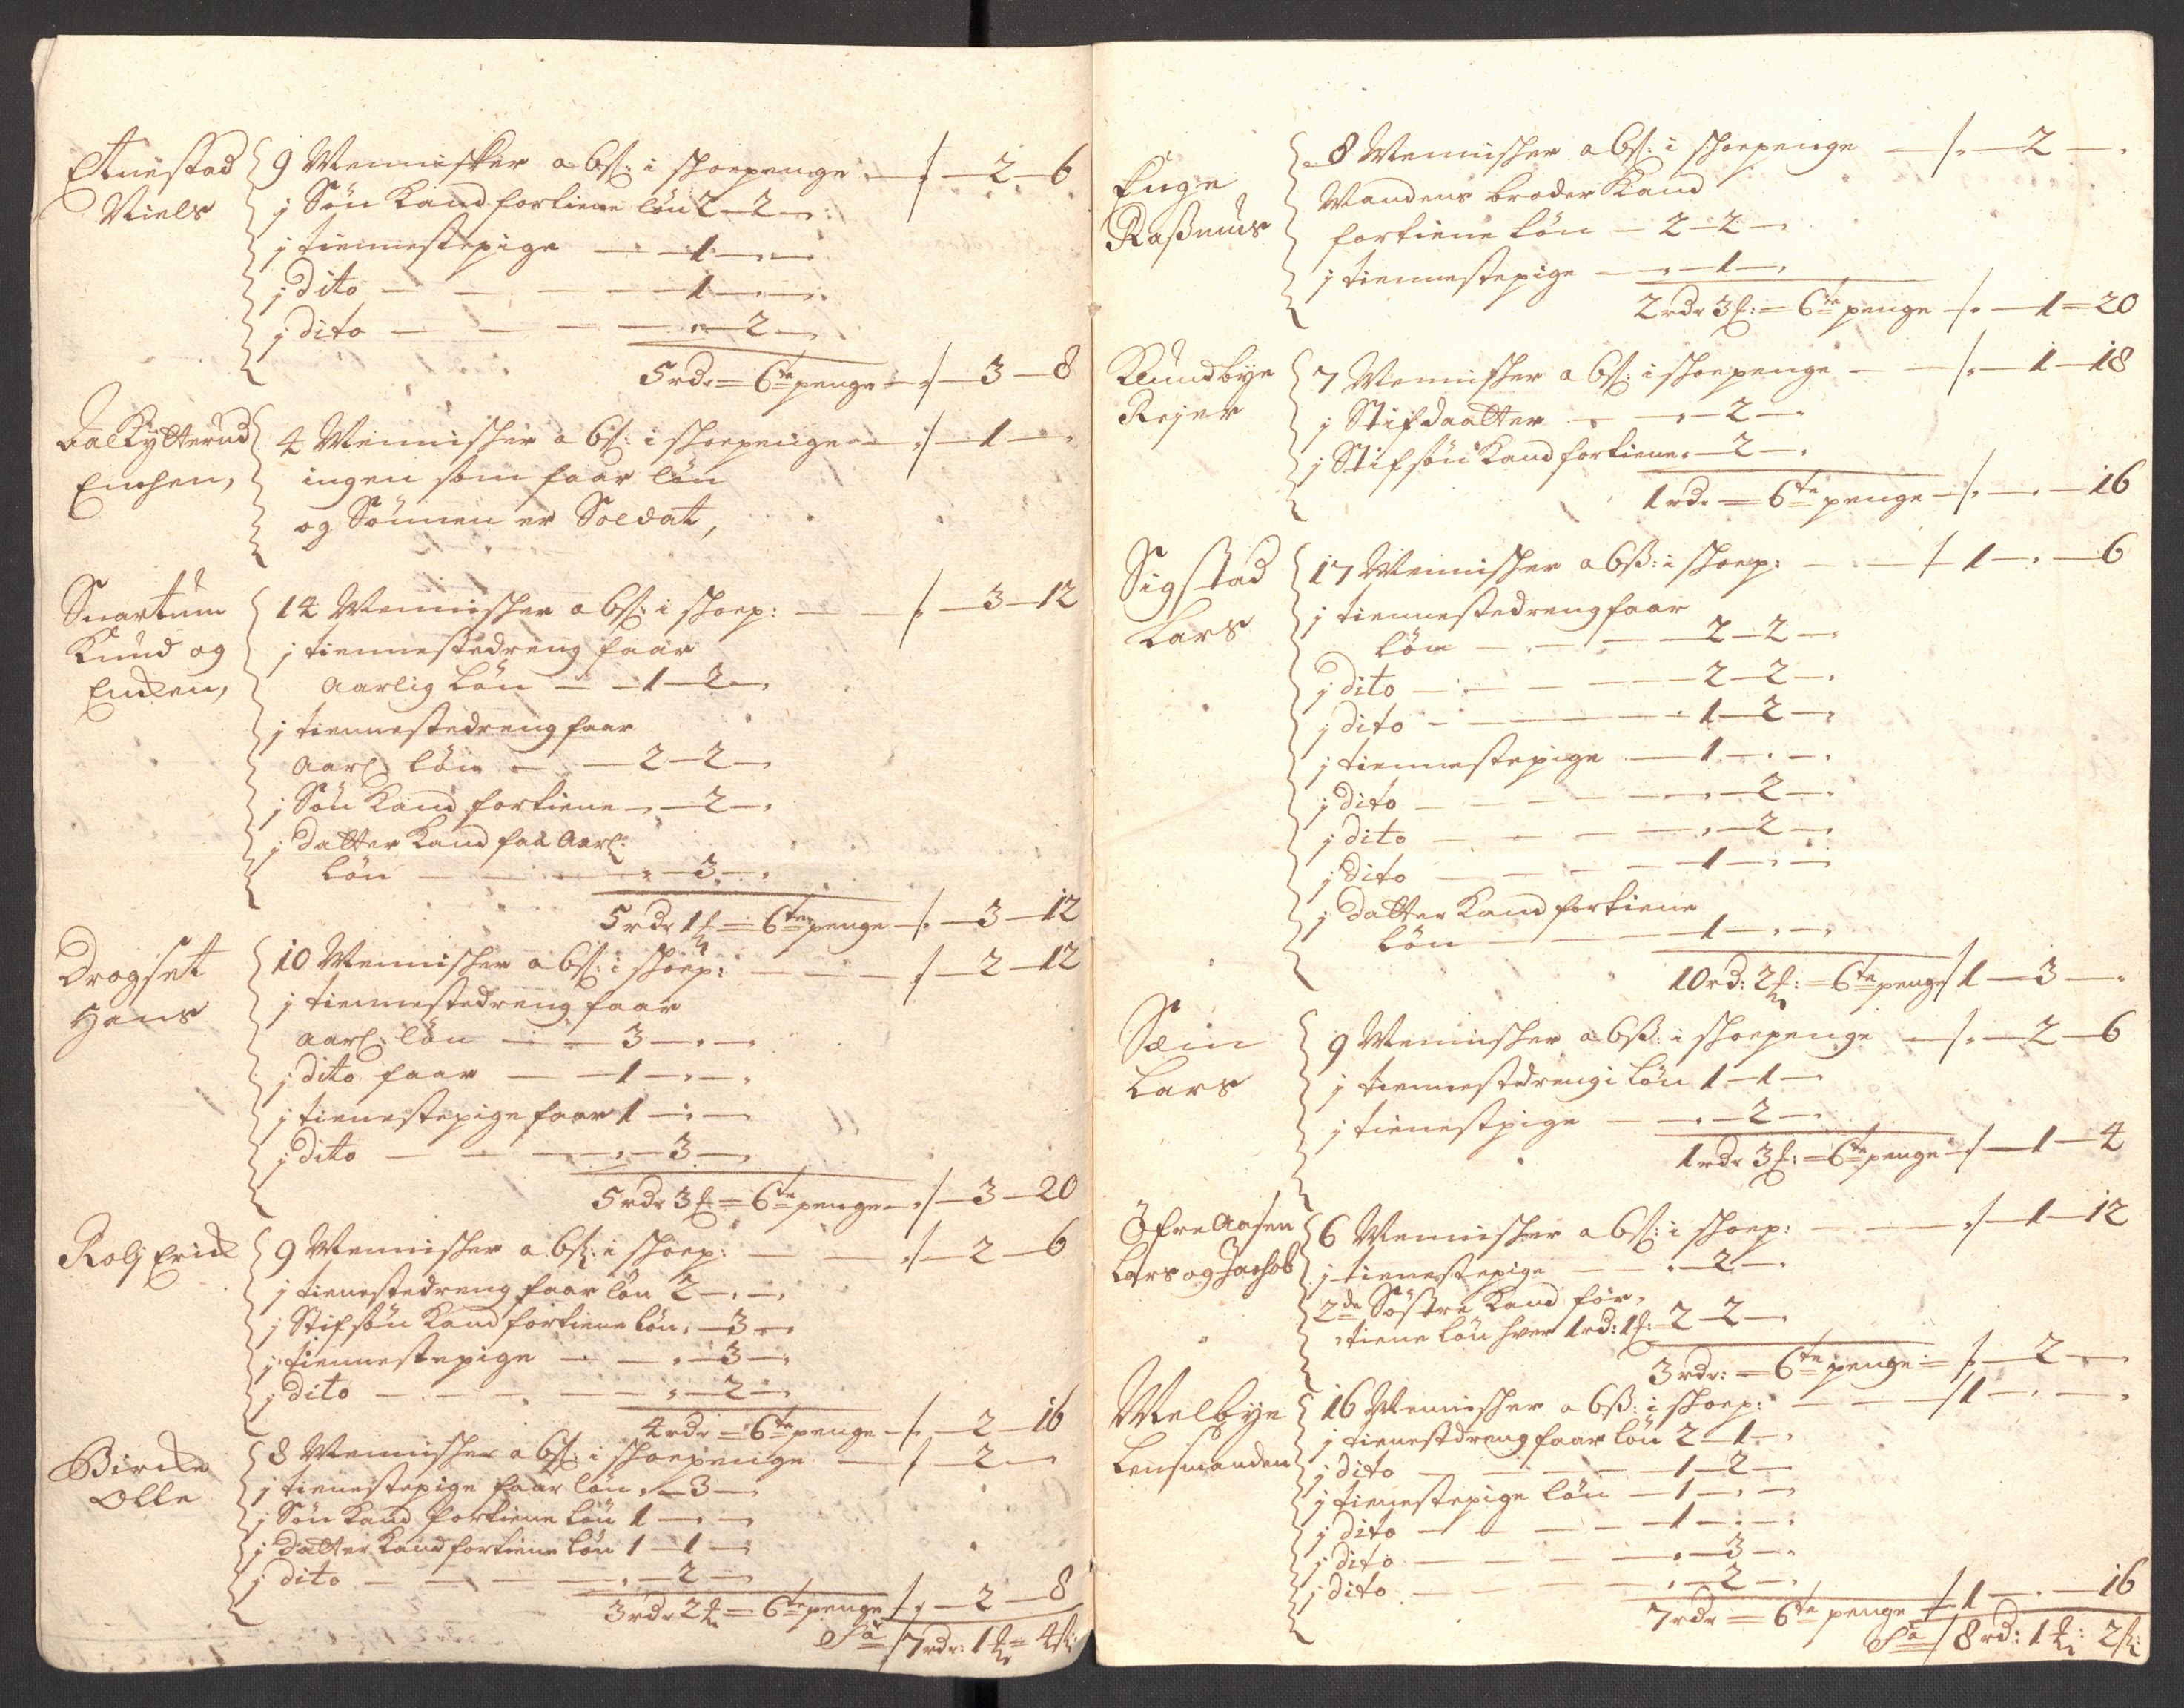 Anestad
Niels
9 Mennisker a 6s: i skoepenge — /. — 2 — 6
j Søn Kand fortiene løn 2 — 2 — .
j tiennestepige — 1 — . — .
j dito — 1 — . — .
j dito — . — 2 — .
5 rdr = 6te penge — ./ — 3 — 8
Dal Kytterud
Enchen,
4 Mennisker a 6s: i skoepenge — ./ — 1 — .
ingen som faar løn
og Sønnen er Soldat,
Snartum
Knud og
Encken,
14 Mennisker a 6s: i skoep: — /. — 3 — 12
j tiennestedreng faar
aarlig løn — 1 — 2 — .
j tiennestedreng faar
aarl: løn — 2 — 2 — .
j Søn Kand fortiene — . — 2 — .
j datter Kand faa aarl:
løn — . — 3 — .
5 rdr 1 f = 6te penge — /. — 3 — 12
Dragset
Hans
10 Mennisker a 6s: i skoep: — ./ — 2 — 12
j tiennestedreng faar
aarl: løn — 3 — . — .
j dito faar — 1 — . — .
j tienestepige faar 1 — . — .
j dito — . — 3 — .
5 rdr 3 f = 6te penge — ./ — 3 — 20
Rolj Erick
9 Mennisker a 6s: i skoep: — ./ — 2 — 6
j tienestedreng faar løn 2 — . — .
j Stifsøn Kand fortiene løn . — 3 — .
j tiennestepige — . — 3 — .
j dito — . — 2 — .
4 rdr = 6te penge — /. — 2 — 16
Bircke
Olle
8 Mennisker a 6s: i skoepenge — / — 2 — .
j tienestepige faar løn . — 3 — .
j Søn Kand fortiene løn 1 — . — .
j datter Kand fortiene løn 1 — 1 — .
j dito — . — 2 — .
3 rdr 2 f = 6te penge /. — 2 — 8
Sa 7 rdr: 1 f = 4 s:
Enge
Rasmus
8 Mennisker a 6s: i skoepenge — /. — 2 — .
Mandens broder Kand
fortiene løn — 2 — 2 — .
j tiennestepige — . — 1 — .
2 rdr 3 f: = 6te penge — /. — 1 = 20
Klundbye
Rejer
7 Mennisker a 6s: i skoepenge — /. — 1 — 18
j Stifdaatter — . — 2 — .
j Stifsøn Kand fortiene . — 2 — .
1 rdr = 6te penge — /. — . — 16
Sigstad
Lars
17 Mennisker a 6s: i skoep: — / 1 — . — 6
j tiennestedreng faar
løn — 2 — 2 — .
j dito — 2 — 2 — .
j dito — 1 — 2 — .
j tiennestepige — 1 — . — .
j dito — . — 2 — .
j dito — . — 2 — .
j dito — 1 — . — .
j datter Kand fortiene
løn — 1 — . — .
10 rd: 2 f: = 6te penge / 1 — 3 — .
Sæin
Lars
9 Mennisker a 6s: i skoepenge — /. — 2 — 6
j tiennestdreng i løn 1 — 1 — .
j tienestpige — . — 2 — .
1 rdr 3 f: = 6te penge — ./ — 1 — 4
Øfre Aasen
Lars og Jachob
6 Mennisker a 6s: i skoep: — ./ — 1 — 12
j tienestepige — . — 2 — .
2de Søstre Kand for-
tiene løn hver 1 rd: 1 f: 2 — 2 — .
3 rdr: = 6te penge = /. — 2 — .
Melbye
Lensmanden
16 Mennisker a 6s: i skoep: — / 1 — . — .
j tienestdreng faar løn 2 — 1 — .
j dito — 1 — 2 — .
j tienestepige løn — 1 — . — .
j dito — 1 — . — .
j dito — . — 3 — .
j dito — . — 2 — .
7 rdr = 6te penge / 1 — . — 16
Sa / 8 rd: 1 f: 2 s: